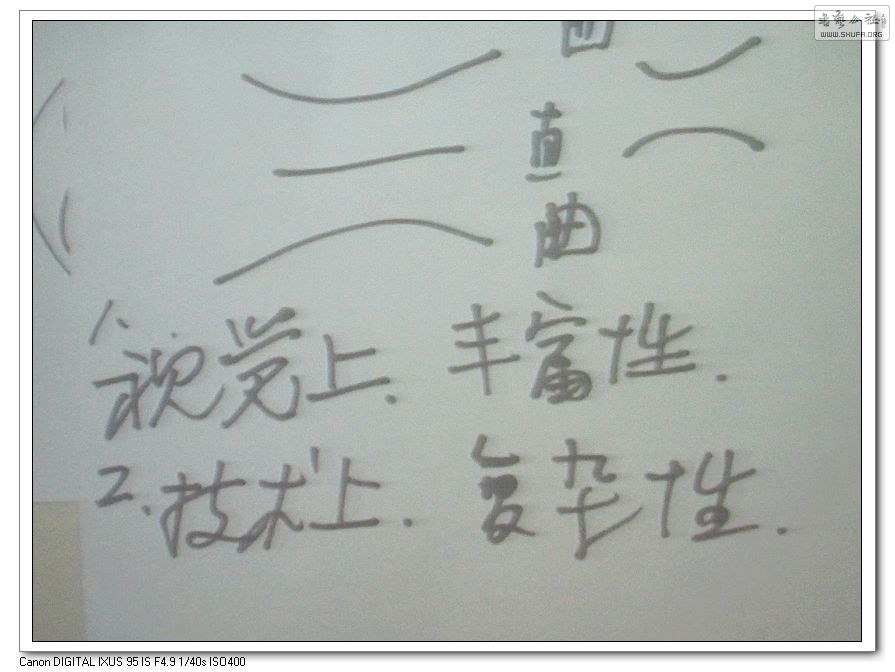 直
曲
1、视觉上. 丰富性.
2.技术上. 复杂性.
WWW.SHUFA.ORG
Canon DIGITAL IXUS 95 IS F4.9 1/40s ISO400